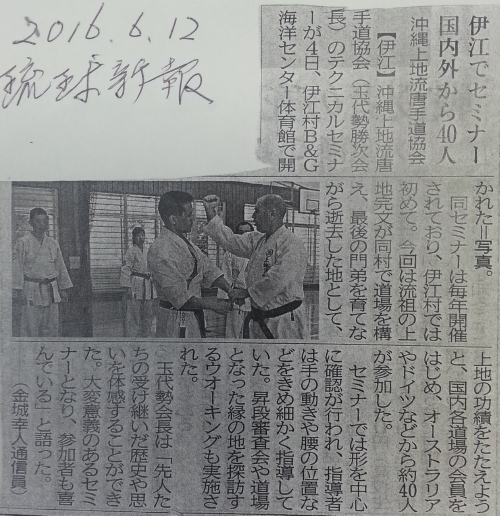 2016.6.12
琉球新報
伊江でセミナー
国内外から40人
沖縄上地流唐手道協会
【伊江】沖縄上地流唐
手道協会（玉代勢勝次会
長）のテクニカルセミナ
ーが4日、伊江村B&G
海洋センター体育館で開
かれた＝写真。
同セミナーは毎年開催
されており、伊江村では
初めて。今回は流祖の上
地完文が同村で道場を構
え、最後の門弟を育てな
がら逝去した地として、
上地の功績をたたえよう
と、国内各道場の会員を
はじめ、オーストラリア
やドイツなどから約40人
が参加した。
セミナーでは形を中心
に確認が行われ、指導者
は手の動きや腰の位置な
どをきめ細かく指導して
いた。昇段審査会や道場
となった縁の地を探訪す
るウオーキングも実施さ
れた。
玉代勢会長は「先人た
ちの受け継いだ歴史や思
いを体感することができ
た。大変意義のあるセミ
ナーとなり、参加者も喜
んでいる」と語った。
（金城幸人通信員）